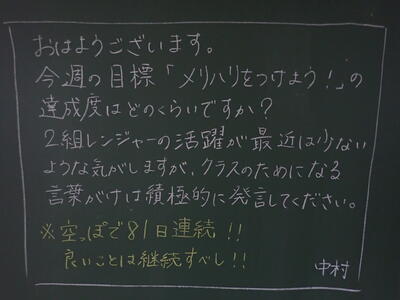 おはようございます。
今週の目標「メリハリをつけよう!」の
達成度はどのくらいですか?
2組レンジャーの活躍が最近は少ない
ような気がしますが、クラスのためになる
言葉がけは積極的に発言してください。
※空っぽで81日連続!!
良いことは継続すべし!!
中村